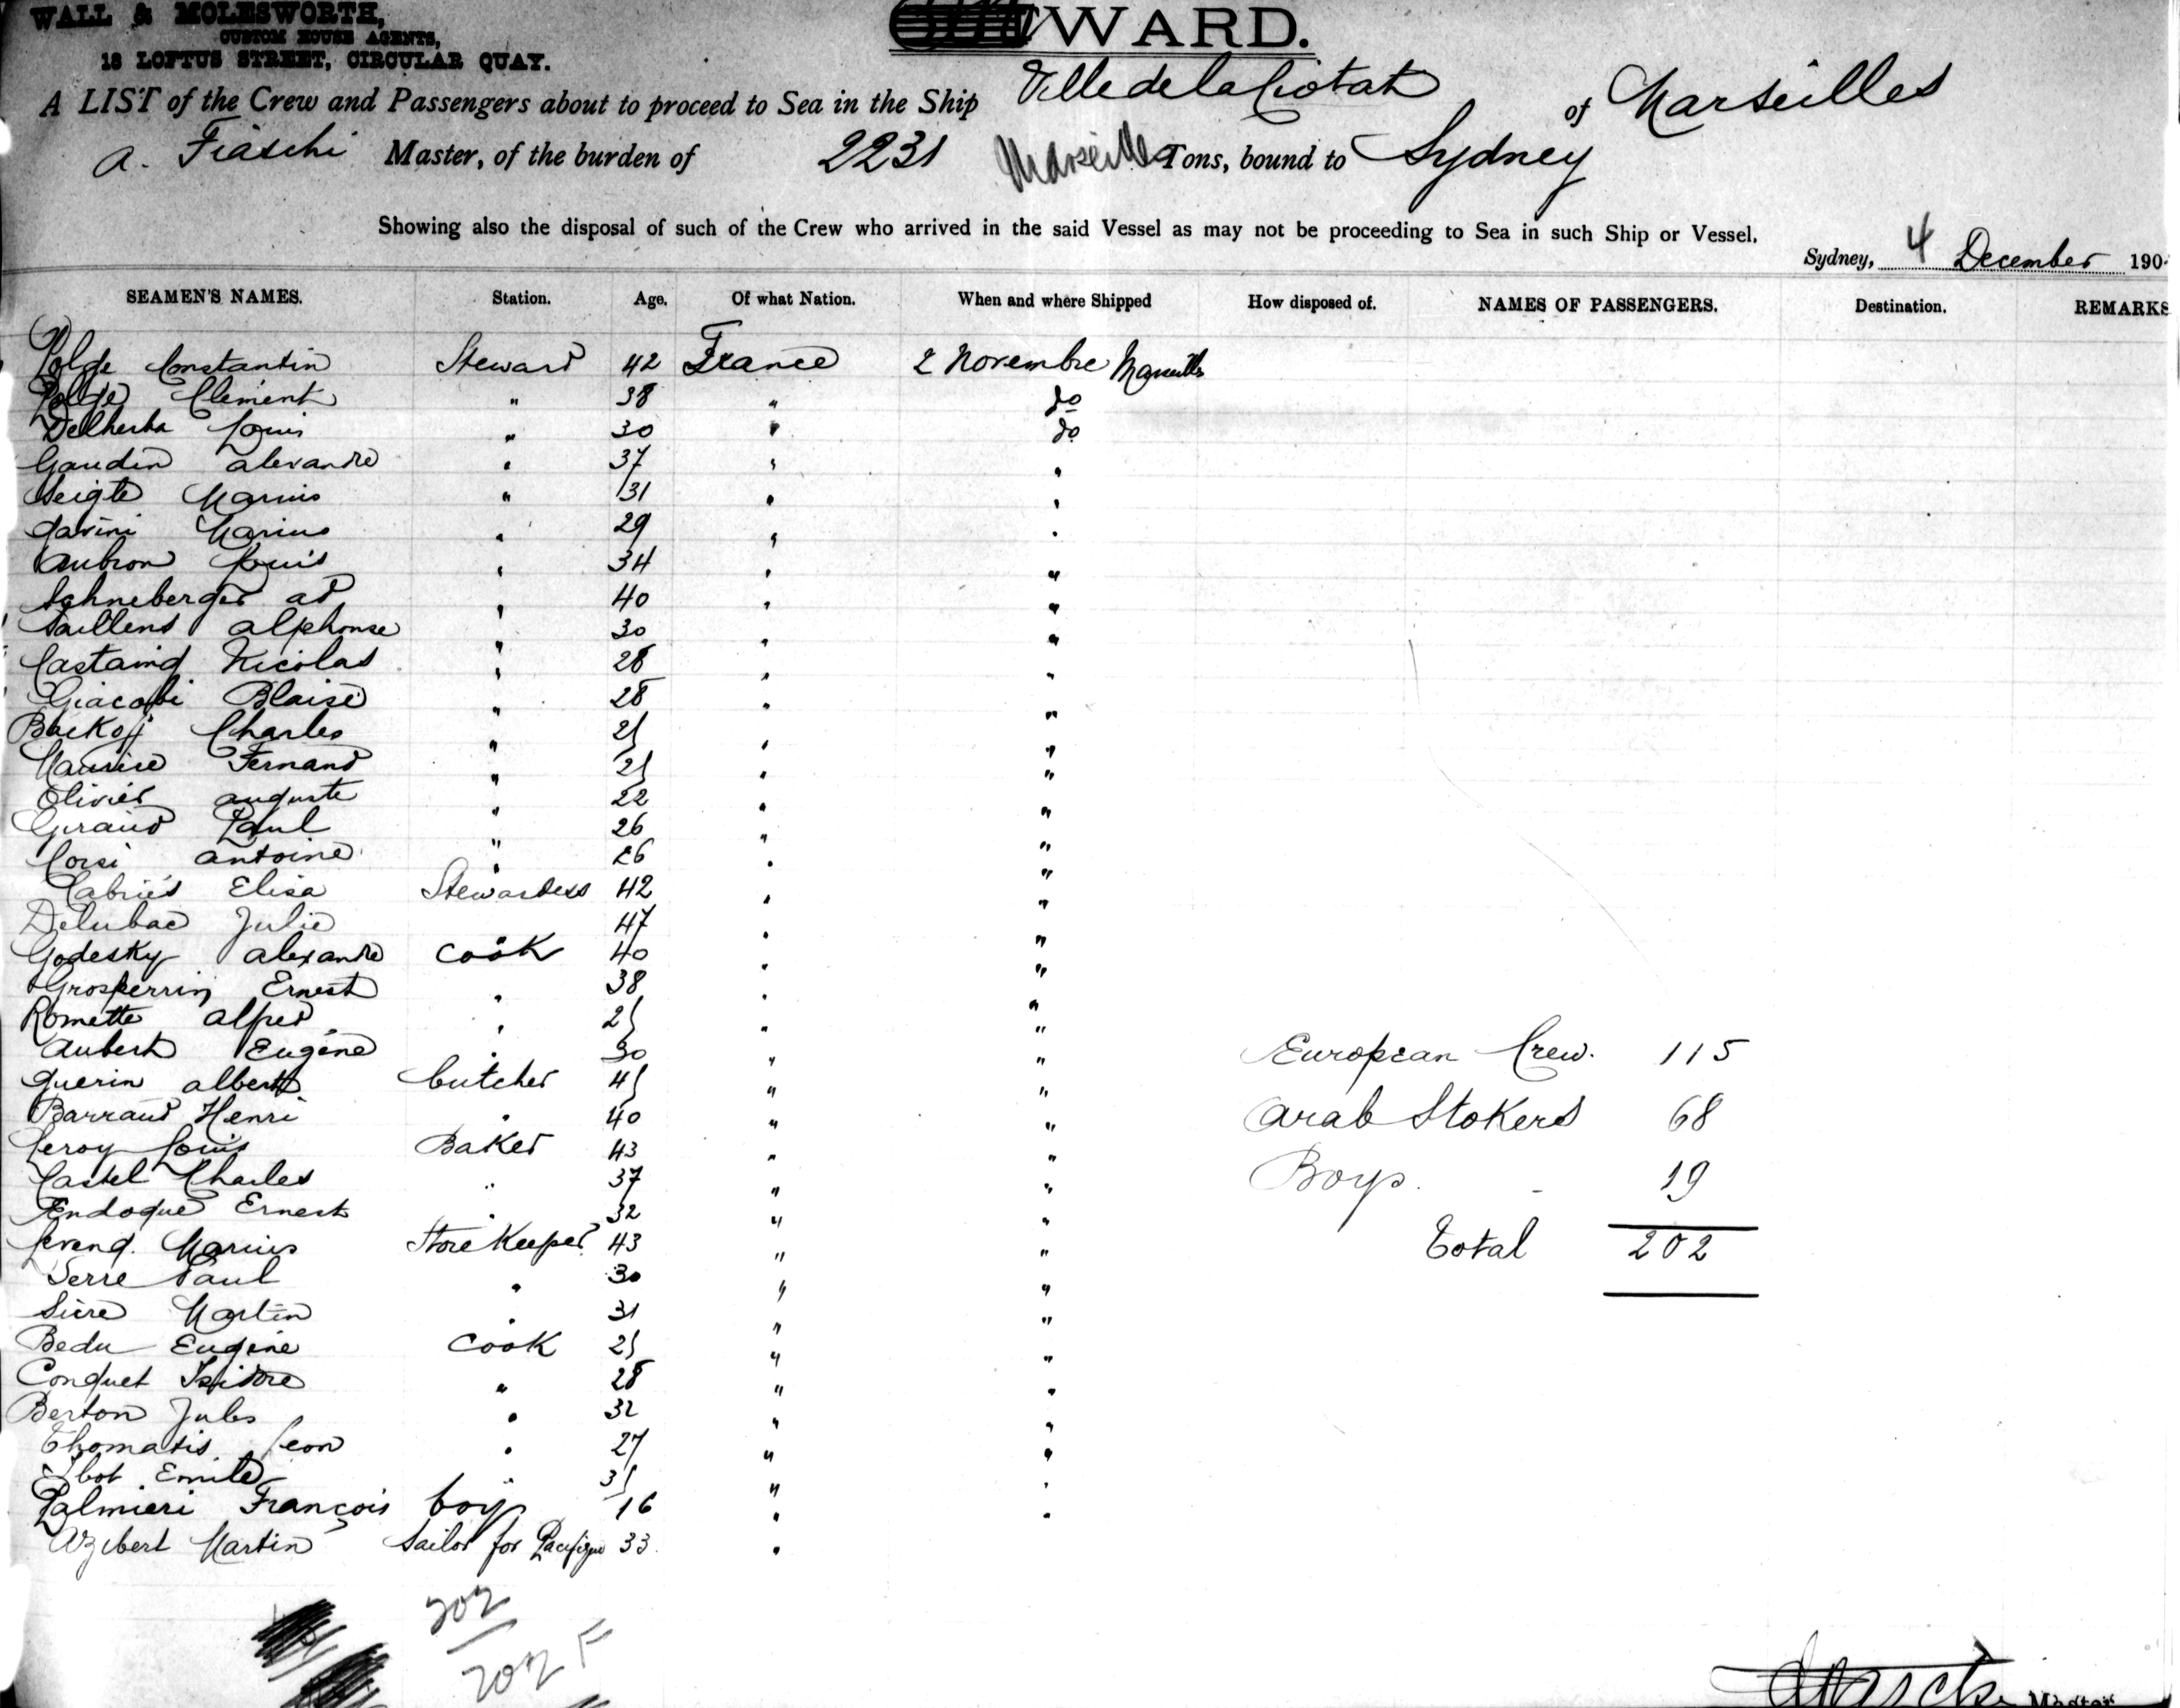 WALL & MOLESWORTH,
CUSTOM HOUSE AGENTS,
18 LOFTUS STREET, CIRCULAR QUAY.
WARD.
A LIST of the Crew and Passengers about to proceed to Sea in the Ship Ville de la Ciotat of Marseilles
A. Fiaschi Master, of the burden of 2231 Marseille Tons, bound to Sydney
Showing also the disposal of such of the Crew who arrived in the said Vessel as may not be proceeding to Sea in such Ship or Vessel.
Sydney, 4 December 190
SEAMEN'S NAMES. Station. Age. Of what Nation. When and where Shipped How disposed of. NAMES OF PASSENGERS. Destination. REMARKS
Polge Constantin Steward 42 France 2 Novembre Marseille
Polge Clément " 38 " do
Delherba Louis " 30 " do
Gaudin alexandre " 37 " "
Seigle Marius " 31 " "
Gavini Marius " 29 " "
Aubron Louis " 34 " "
Schneberger ad " 40 " "
Saillens alphonse " 30 " "
Castaing Nicolas " 28 " "
Giacobi Blaise " 28 " "
Charles " 25 " "
Maurice Fernand " 25 " "
Olivier auguste " 22 " "
Giraud Paul " 26 " "
Corsi antoine " 26 " "
Cabriés Elisa Stewardess 42 " "
Delubac Julie " 47 " "
Godesky alexandre Cook 40 " "
Grosperrin Ernest " 38 " "
Romette alfred " 25 " "
Aubert Eugène " 30 " "
Guerin albert butcher 45 " "
Barraud Henri " 40 " "
Leroy Louis Baker 43 " "
Castel Charles " 37 " "
Endoque Ernest " 32 " "
Marius Store Keeper 43 " "
Serre Paul " 30 " "
Sicre Martin " 31 " "
Bedu Eugène Cook 25 " "
Conquet Isidore " 28 " "
Berton Jules " 32 " "
Thomatis Leon " 27 " "
Emile " 35 " "
Palmieri François boy 16 " "
Martin Sailor for Pacifique 33 "
European Crew. 115
Arab Stokers 68
Boys. - 19
Total 202
202
202 F
Master